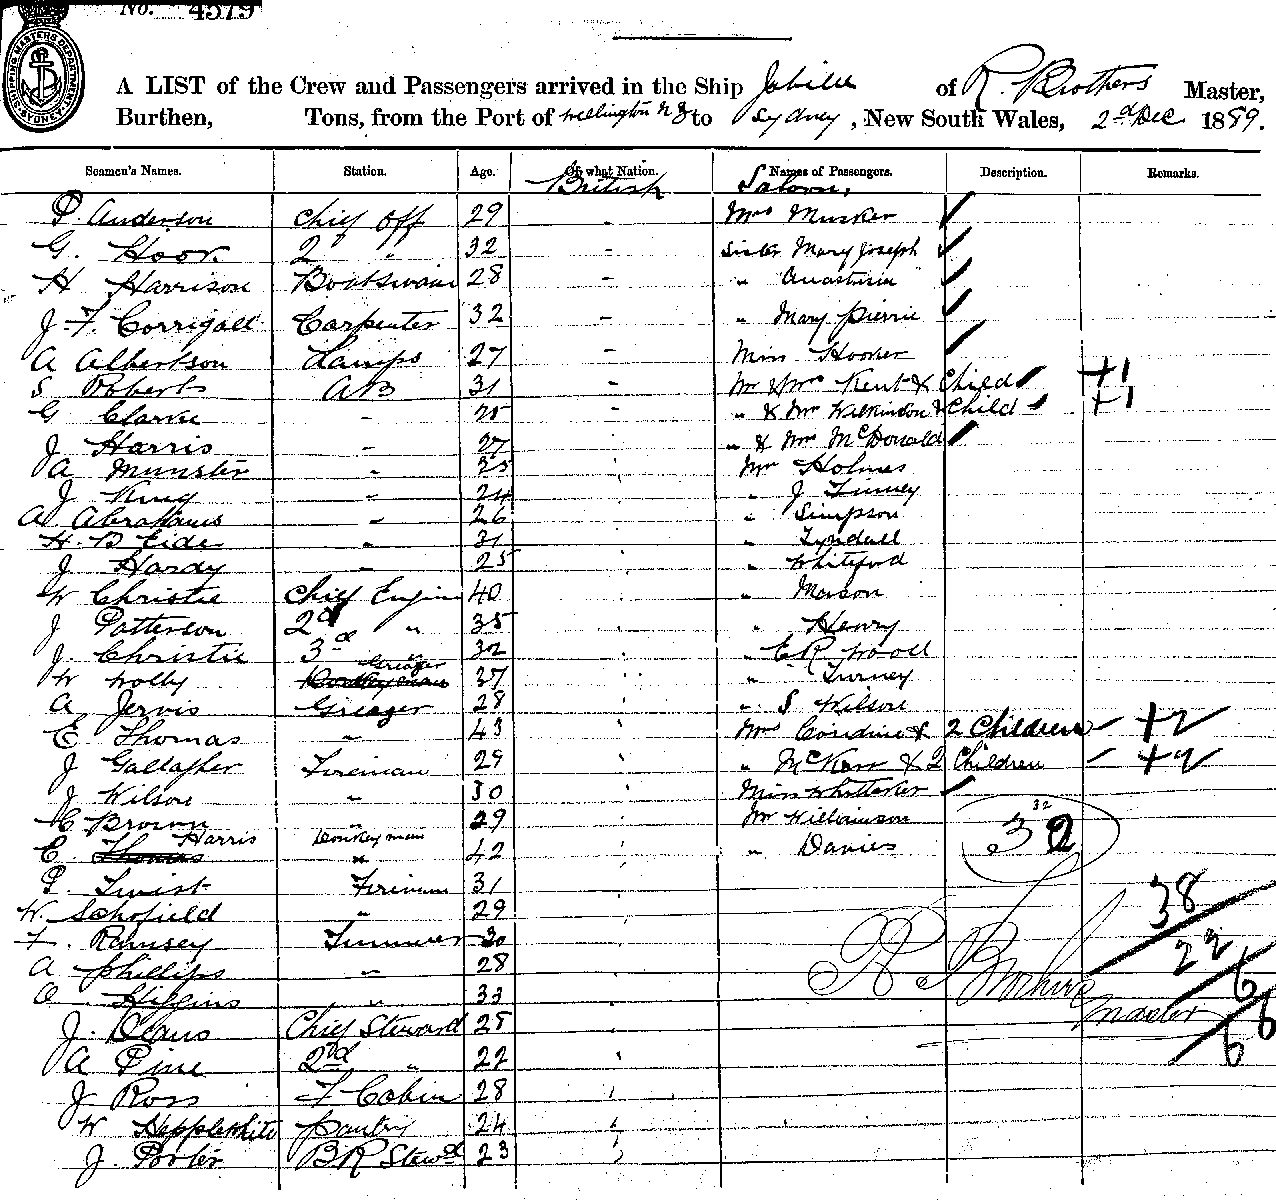 No. 4379
SHIPPING MASTERS DEPARTMENT SYDNEY
A LIST of the Crew and Passengers arrived in the Ship Jubilee of R. Brothers Master,
Burthen, Tons, from the Port of Wellington NZ to Sydney, New South Wales, 2nd Dec 1889.
Seamen's Names. Station. Age. Of what Nation. Names of Passengers. Description. Remarks.
British Saloon,
P. Anderson Chief Off 29 - Mrs Musker ✓
G. Hoor 2 " " 32 - Sister Mary Joseph ✓
H Harrison Boatswain 28 - " Anastasia ✓
J F. Corrigall Carpenter 32 - " Mary Pierrie ✓
A Albertson Lamps 27 - Miss Hooker ✓
S Roberts AB 31 - Mr & Mrs Kent & Child ✓ +1
G Clarke - 25 - " & Mrs Wilkinson & Child ✓ +1
J Harris - 27 - " & Mrs McDonald ✓
A Munster " 35 Mr Holmes
J King " 24 " J Finney
A Abrahams " 26 " Simpson
H. B Eide " 31 " Tyndall
J Hardy - 25 " Whiteford
W Christie Chief Engin 40 " Mason
J Patterson 2d " 35 " Henry
J. Christie 3d " 32 " E R Wood
W Wolby Greaser 37 " Turney
A Jervis Greaser 28 " S Wilson
E Thomas " 43 Mrs Considine & 2 Children - +2
J Gallagher Fireman 29 " McKerr & 2 Children - +2
J Wilson " 30 Miss Whittaker ✓
C Brown " 29 Mr Williamson 32
E. Thomas Harris Donkeyman 42 " Davies 32
P. Twist Fireman 31
W. Schofield " 29 38
F. Ramsey Trimmer 30 22
A Phillips " 28 6
O Higgins " 33 R Brothers
J. Claus Chief Steward 25 Master 6
A Pine 2nd " 22 6
J Ross F Cabin 28
W Hepplewhite Pantry 24
J. Porter BR Stewd 23